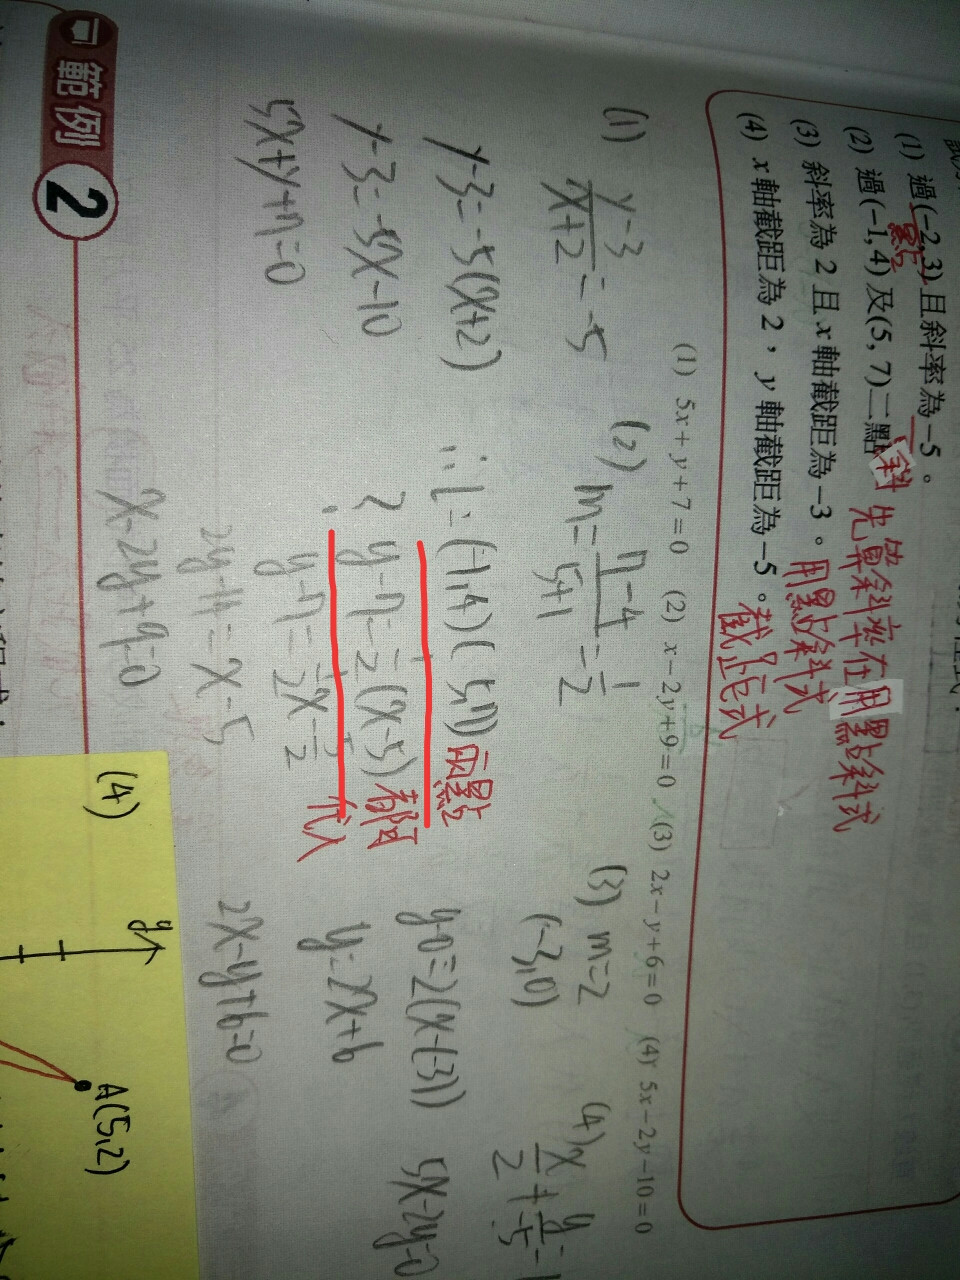 (1) 過(-2,3)且斜率為-5。
點
斜
(2) 過(-1,4)及(5,7)二點
先算斜率在用點斜式
(3) 斜率為2且x軸截距為-3。用點斜式
(4) x軸截距為2，y軸截距為-5。截距式
(1) 5x+y+7=0 (2) x-2y+9=0 (3) 2x-y+6=0 (4) 5x-2y-10=0
(1) y-3/x+2=-5
y-3=-5(x+2)
y-3=-5x-10
5x+y+7=0
(2) m=7-4/5+1=1/2
∴L:(-1,4)(5,7) 兩點
y-7=1/2(x-5) 都可
y-7=1/2x-5/2 代入
2y-14=x-5
x-2y+9=0
(3) m=2
(-3,0)
y-0=2(x-(-3))
y=2x+6
2x-y+6=0
(4) x/2+y/-5=1
5x-2y=0
範例 2
(4)
y
A(5,2)